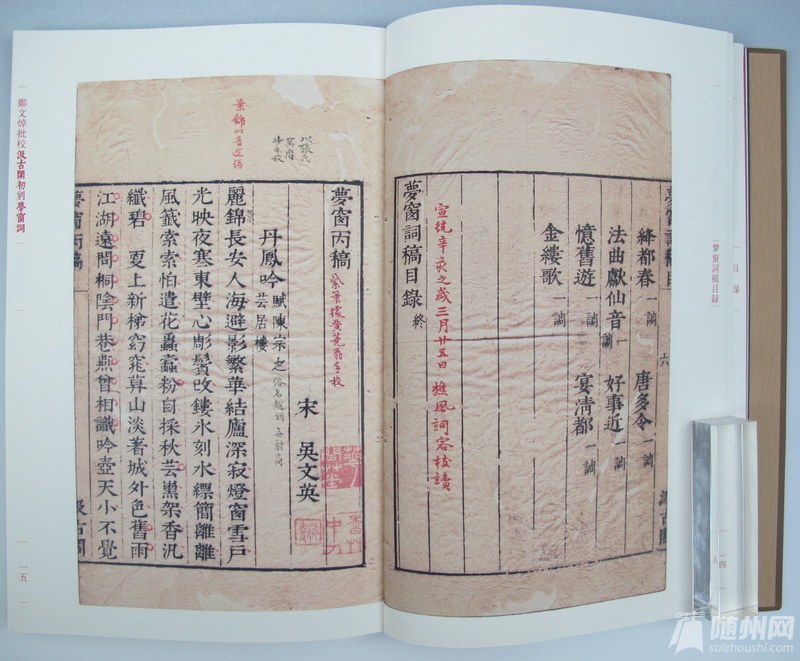 夢窗詞稿目錄
一四
六
汲古閣
絳都春 一調 唐多令 一調
法曲獻仙音 一調 好事近 一調
憶舊遊 一調 宴清都 一調
金縷歌 一調
宣統辛亥之歲三月廿五日 樵風詞客校讀
夢窗詞稿目錄 終
夢窗丙稿 紫筆據黃蕘翁手校
宋 吳文英
丹鳳吟 賦陳宗之芸居樓
麗錦長安人海避影繁華結廬深寂燈窗雪戶
光映夜寒東壁心彫鬢改鏤氷刻水縹簡離離
風籤索索怕遺花蟲蠹粉自採秋芸熏架香汎
纖碧 更上新梯窈窕暮山淡著城外色舊雨
江湖遠問桐陰門巷燕曾相識吟壺天小不覺
夢窗丙稿
汲古閣
鄭文焯批校汲古閣初刻夢窗詞
一五
随州网
suizhoushi.com